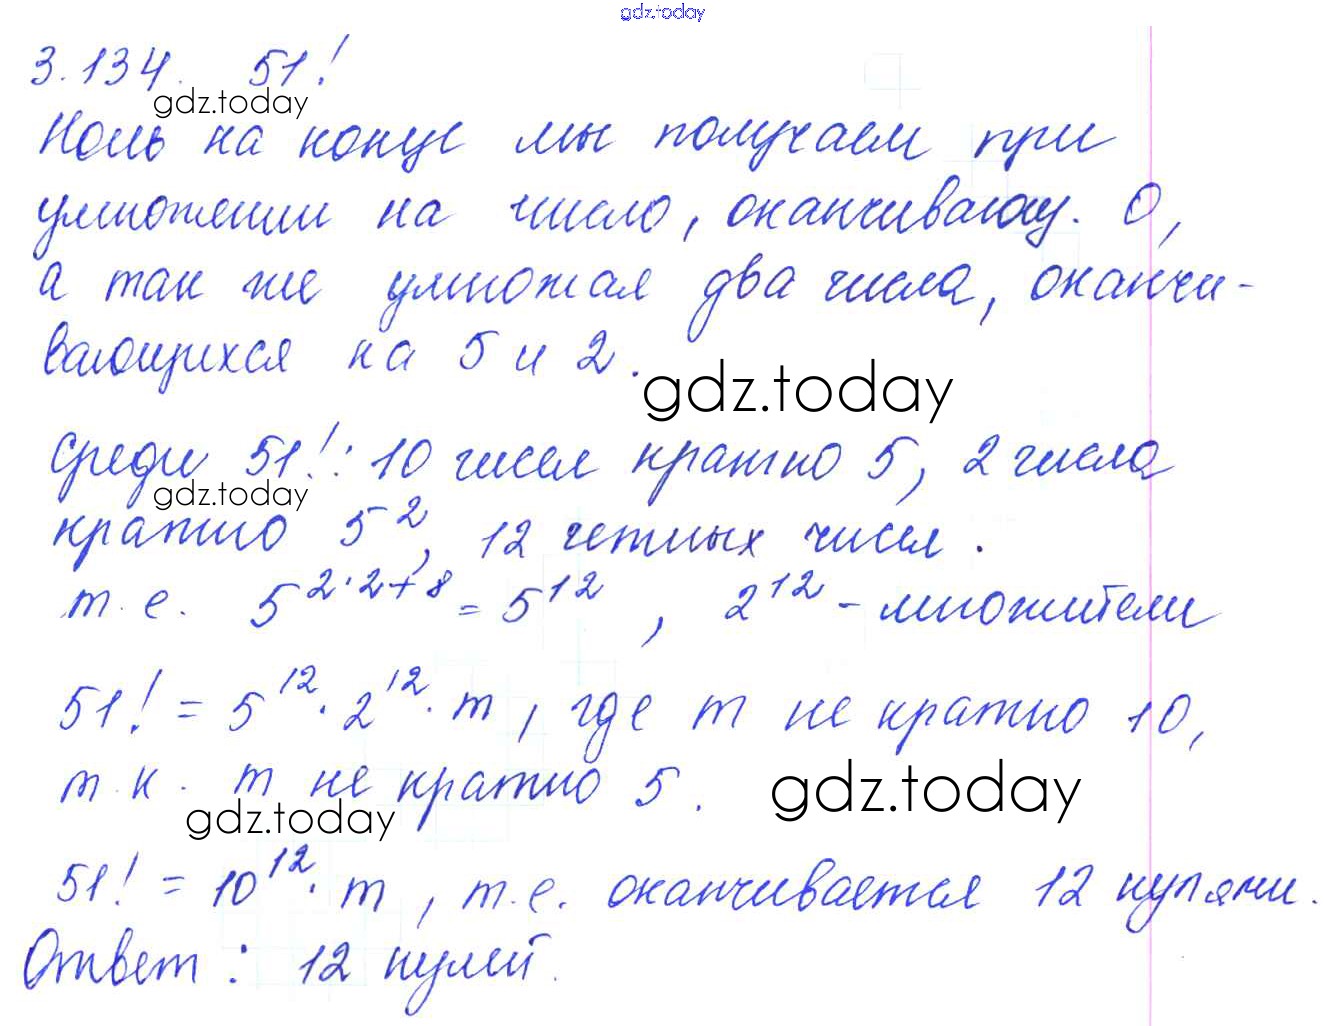 gdz.today
3.134. 51!
gdz.today
Ноль на конце мы получаем при
умножении на число, оканчивающ. 0,
а так же умножая два числа, оканчи-
вающихся на 5 и 2.
gdz.today
Среди 51!: 10 чисел кратно 5, 2 числа
gdz.today
кратно 5², 12 четных чисел.
т.е. 5^{2·2+8} = 5^{12}, 2^{12} - множители
51! = 5^{12} · 2^{12} · m, где m не кратно 10,
т.к. m не кратно 5.
gdz.today
gdz.today
51! = 10^{12} · m, т.е. оканчивается 12 нулями.
Ответ: 12 нулей.